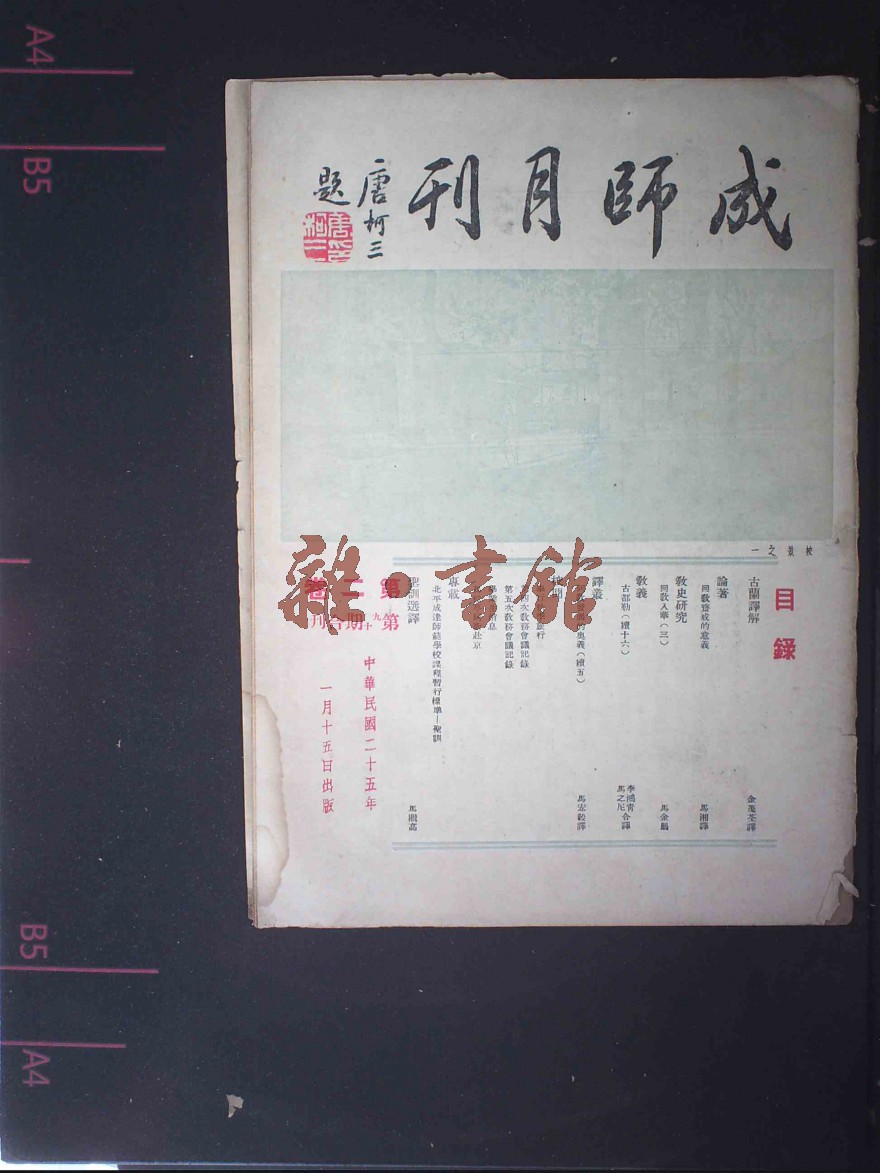 成師月刊
唐柯三
題
唐柯三印
校景之一
目錄
古蘭譯解
金茂荃譯
論著
回教齋戒的意義
馬湘譯
教史研究
回教入華（三）
馬金鵬
教義
古都勒（續十六）
李鴻青
馬之尼合譯
譯叢
的奧義（續五）
馬宏毅譯
旅行
四次教務會議記錄
第五次教務會議記錄
息
赴京
專載
北平成達師範學校課程暫行標準—聖訓
聖訓選譯
第二卷
第九十期合刊
中華民國二十五年
一月十五日出版
雜·書館
A4
B5
B5
A4